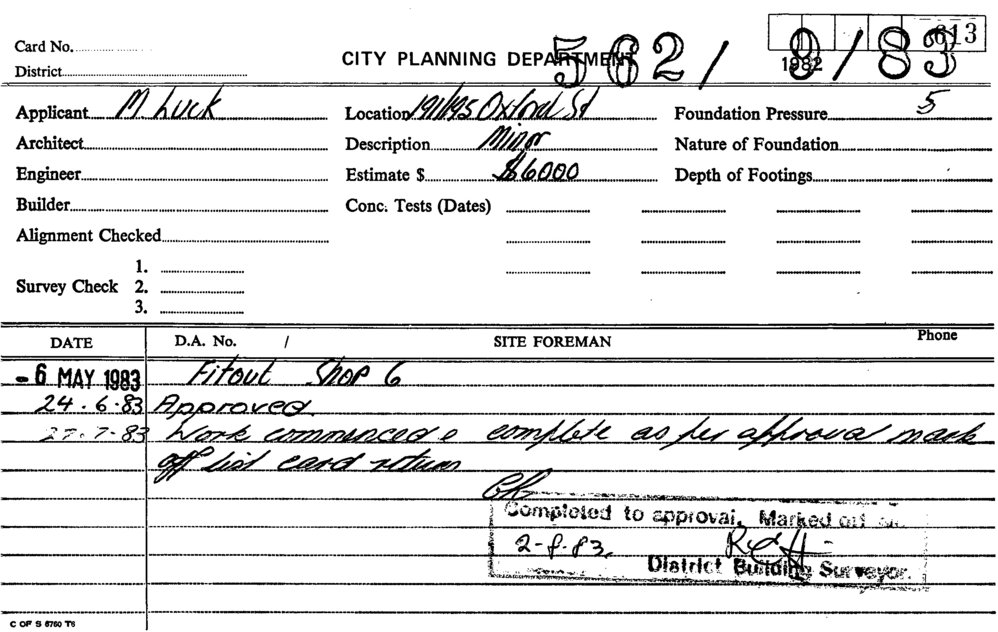 Card No.
CITY PLANNING DEPARTMENT
562/9/83
613
1982
District
Applicant M. Luck
Location 191/195 Oxford St
Foundation Pressure 5
Architect
Description Minor
Nature of Foundation
Engineer
Estimate $ $6000
Depth of Footings
Builder
Conc. Tests (Dates)
Alignment Checked
Survey Check 1.
2.
3.
DATE D.A. No. / SITE FOREMAN Phone
- 6 MAY 1983 Fitout Shop 6
24.6.83 Approved.
27.7.83 Work commenced & complete as per approval mark
off list card return
Completed to approval. Marked off
2-8-83.
District Building Surveyor.
C OF S 6760 T6